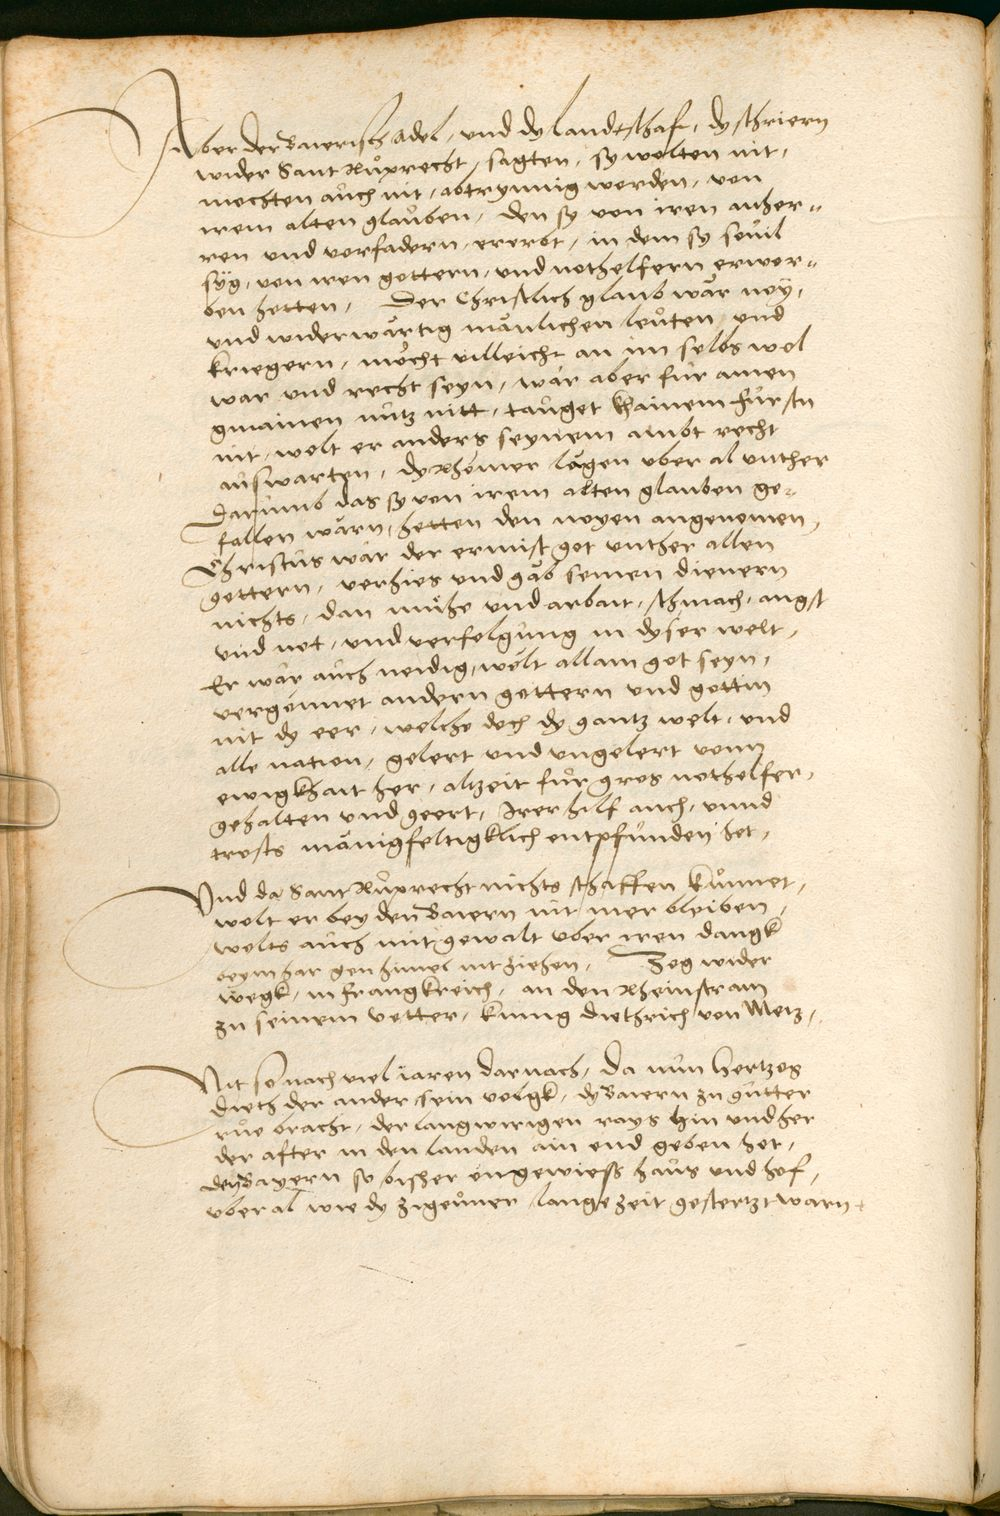 Aber der Baierisch Adel, und dy landtschaft, dy schriern
wider Sant Růprecht, sagten, sy wolten nit,
mochten aůch nit, abtrynnig werden, von
irem alten glaůben, den sy von iren anher„
ren und vorfadern, ererbt, in dem sy sovil
syg, von iren gottern, und nothelfern erwor„
ben hetten, Der Christlich glaub wär ney,
und widerwärtig mänlichen leůten und
kriegern, möcht villeicht an im selbs wol
war und recht seyn, wär aber für ainen
gmainen nůtz nitt, taůget khainem fůrstn
nit, wolt er anders seynem ambt recht
aůswarten, dy Rhömer lägen uber al unther
Darůmb das sy von irem alten glauben ge„
fallen wärn, hetten den neyen angenomen,
Christůs wär der ermist got unther allen
gottern, verhies und gäb seinen dienern
nichts, dan mühe und arbait, schmach, angst
und not, und verfolgůng in dyser welt,
Er wär aůch neidig, wölt allain got seyn,
vergönnet andern göttern und göttin
nit dy eer, welche doch dy gantz welt, und
alle nation, gelert und ungelert vonn
ewigkhait her, altzeit fůr gros nothelfer,
gehalten und geert, Irer hilf auch, unnd
trosts mänigfeltigklich entpfůnden het,
Und da Sant Růprecht nichts schaffen kůnnet,
wolt er bey den Baiern nit mer bleiben,
wolts aůch mit gewalt uber iren dangk
beym har gen himel nit ziehen, Zog wider
wegk, in Frangkreich, an den Rheinstram
zu seinem vetter, kunig Diethrich von Metz,
Nit so nach viel iaren darnach, da nůn Hertzog
Dieth der ander sein volgk, dy Baiern zu gůtter
růe bracht, der langwirigen rays hin und her
der after in den landen ain end geben het,
dy Bayern so bisher ungewiess haůs und hof,
uber al wie dy zigeůner lange zeit gestertzt warn